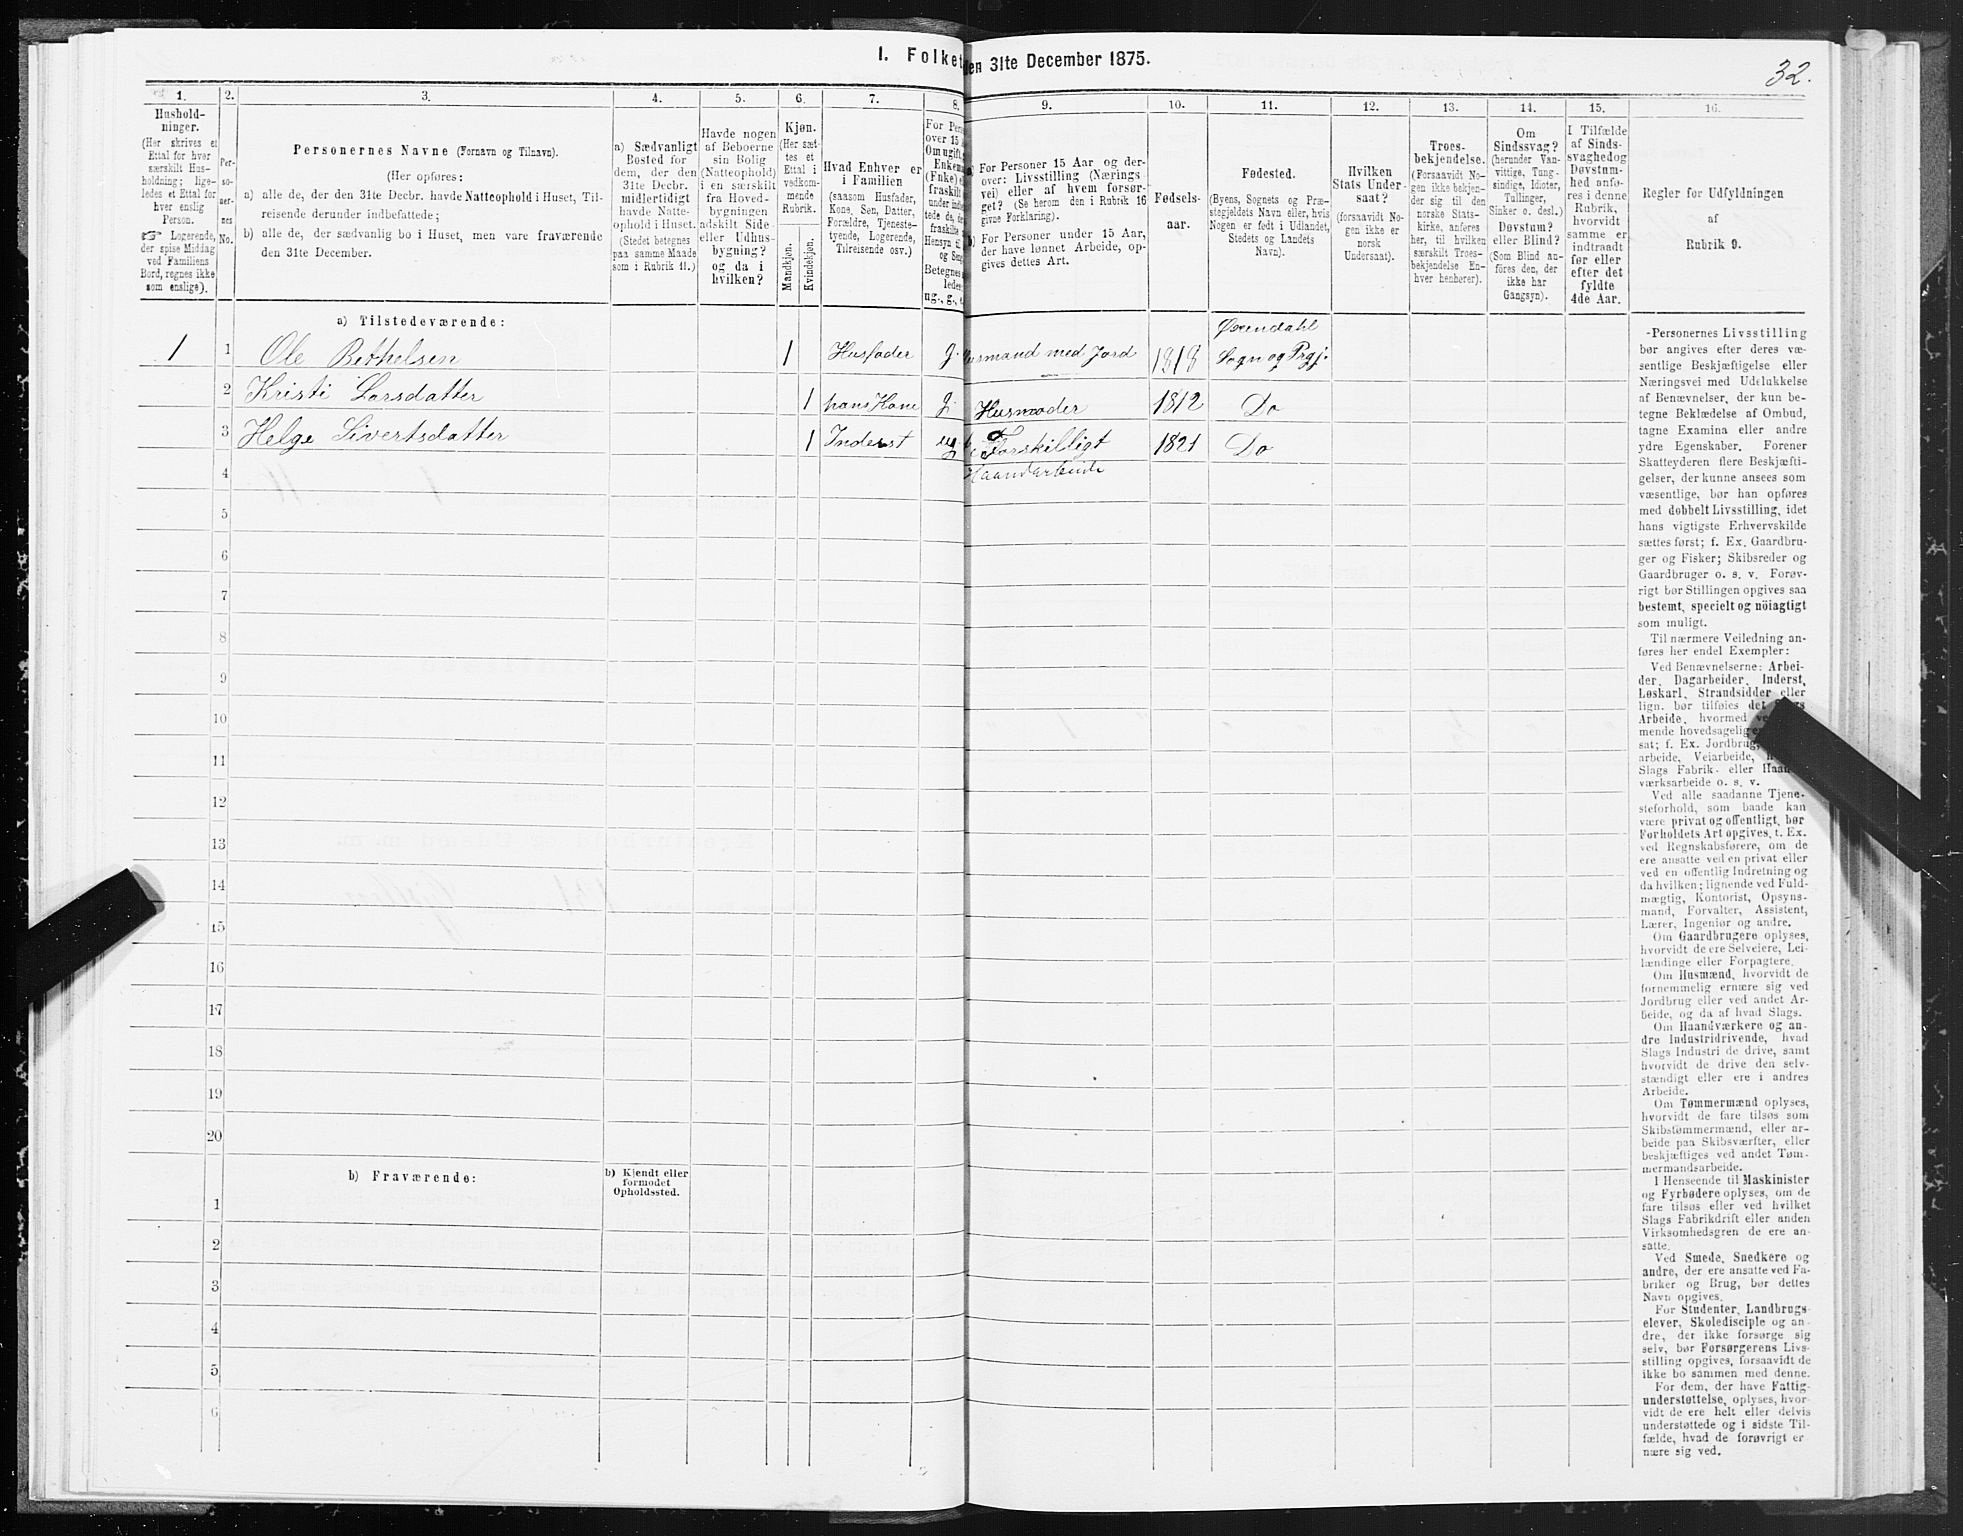 I. Folket
den 31te December 1875.
32.
1.
2.
3.
4.
5.
6.
7.
8.
9.
10.
11.
12.
13.
14.
15.
16.
Hushold-
ninger.
(Her skrives et
Ettal for hver
særskilt Hus-
holdning; lige-
ledes et Ettal for
hver enslig
Person.
☞ Logerende,
der spise Middag
ved Familiens
Bord, regnes ikke
som enslige).
Per-
so-
ner-
nes
No.
Personernes Navne (Fornavn og Tilnavn).
(Her opføres:
a) alle de, der den 31te Decbr. havde Natteophold i Huset, Til-
reisende derunder indbefattede;
b) alle de, der sædvanlig bo i Huset, men vare fraværende
den 31te December.
a) Sædvanligt
Bosted for
dem, der den
31te Decbr.
midlertidigt
havde Natte-
ophold i Huset.
(Stedet betegnes
paa samme Maade
som i Rubrik 11.)
Havde nogen
af Beboerne
sin Bolig
(Natteophold)
i en særskilt
fra Hoved-
bygningen
adskilt Side-
eller Udhus-
bygning?
og da i
hvilken?
Kjøn.
(Her sæt-
tes et
Ettal i
vedkom-
mende
Rubrik.
Mandkjøn.
Kvindekjøn.
Hvad Enhver er
i Familien
(saasom Husfader,
Kone, Søn, Datter,
Forældre, Tjeneste-
tyende, Logerende,
Tilreisende osv.)
For Pers
over 15
Om ugift,
Enkem
(Fnke) e
fraskilt
under ind
tede de,
fraskilte
Hensyn til
og Sen
Betegnes
leder
ug., g., e
a) For Personer 15 Aar og der-
over: Livsstilling (Nærings-
vei) eller af hvem forsør-
get? (Se herom den i Rubrik 16
givne Forklaring).
b) For Personer under 15 Aar,
der have lønnet Arbeide, op-
gives dettes Art.
Fødsels-
aar.
Fødested.
(Byens, Sognets og Præ-
stegjeldets Navn eller, hvis
Nogen er født i Udlandet,
Stedets og Landets
Navn).
Hvilken
Stats Under-
saat?
(forsaavidt No-
gen ikke er
norsk
Undersaat).
Troes-
bekjendelse.
(Forsaavidt No-
gen ikke bekjen-
der sig til den
norske Stats-
kirke, anføres
her, til hvilken
særskilt Troes-
bekjendelse En-
hver henhører).
Om
Sindssvag?
(herunder Van-
vittige, Tung-
sindige, Idioter,
Tullinger,
Sinker o. desl.)
Døvstum?
eller Blind?
(Som Blind an-
føres den, der
ikke har
Gangsyn).
I Tilfælde
af Sinds-
svaghedog
Døvstum-
hed anfø-
res i denne
Rubrik,
hvorvidt
samme er
indtraadt
før eller
efter det
fyldte
4de Aar.
Regler for Udfyldningen
af
Rubrik 9.
a) Tilstedeværende:
1 1 Ole Bethelsen 1 Husfader g. Husmand med Jord 1818 Øxendahl
Sogn og Prgj.
2 Kristi Larsdatter 1 hans Kone g. Husmoder 1812 Do
3 Helge Sivertsdatter 1 Inderst ug. Forskilligt 1821 Do
Haandarbeide
4
5
6
7
8
9
10
11
12
13
14
15
16
17
18
19
20
b) Fraværende:
b) Kjendt eller
formodet
Opholdssted.
1
2
3
4
5
6
-Personernes Livsstilling
bør angives efter deres væ-
sentlige Beskjæftigelse eller
Næringsvei med Udelukkelse
af Benævnelser, der kun be-
tegne Beklædelse af Ombud,
tagne Examina eller andre
ydre Egenskaber. Forener
Skatteyderen flere Beskjæfti-
gelser, der kunne ansees som
væsentlige, bør han opføres
med dobbelt Livsstilling, idet
hans vigtigste Erhvervskilde
sættes først; f. Ex. Gaardbru-
ger og Fisker; Skibsreder og
Gaardbruger o. s. v. Forøv-
rigt bør Stillingen opgives saa
bestemt, specielt og nöiagtigt
som muligt.
Til nærmere Veiledning an-
føres her endel Exempler:
Ved Benævnelserne: Arbei-
der, Dagarbeider, Inderst,
Løskarl, Strandsidder eller
lign. bør tilføies det Slags
Arbeide, hvormed ved
mende hovedsagelig e
sat; f. Ex. Jordbrug,
arbeide, Veiarbeide,
Slags Fabrik- eller Haand
værksarbeide o. s. v.
Ved alle saadanne Tjene-
steforhold, som baade kan
være privat og offentligt, bør
Forholdets Art opgives, t. Ex.
ved Regnskabsførere, om de
ere ansatte ved en privat eller
ved en offentlig Indretning og
da hvilken; lignende ved Fuld-
mægtig, Kontorist, Opsyns-
mand, Forvalter, Assistent,
Lærer, Ingeniør og andre.
Om Gaardbrugere oplyses,
hvorvidt de ere Selveiere, Lei-
lændinge eller Forpagtere.
Om Husmænd, hvorvidt de
fornemmelig ernære sig ved
Jordbrug eller ved andet Ar-
beide, og da af hvad Slags.
Om Haandværkere og an-
dre Industridrivende, hvad
Slags Industri de drive, samt
hvorvidt de drive den selv-
stændigt eller ere i andres
Arbeide.
Om Tømmermænd oplyses,
hvorvidt de fare tilsøs som
Skibstømmermænd, eller ar-
beide paa Skibsværfter, eller
beskjæftiges ved andet Tøm-
mermandsarbeide.
I Henseende til Maskinister
og Fyrbødere oplyses, om de
fare tilsøs eller ved hvilket
Slags Fabrikdrift eller anden
Virksomhedsgren de ere an-
satte.
Ved Smede, Snedkere og
andre, der ere ansatte ved Fa-
briker og Brug, bør dettes
Navn opgives.
For Studenter, Landbrugs-
elever, Skoledisciple og an-
dre, der ikke forsørge sig
selv, bør Forsørgerens Livs-
stilling opgives, forsaavidt de
ikke bo sammen med denne.
For dem, der have Fattig-
understøttelse, oplyses, hvor-
vidt de ere helt eller delvis
understøttede og i sidste Til-
fælde, hvad de forøvrigt er
nære sig ved.